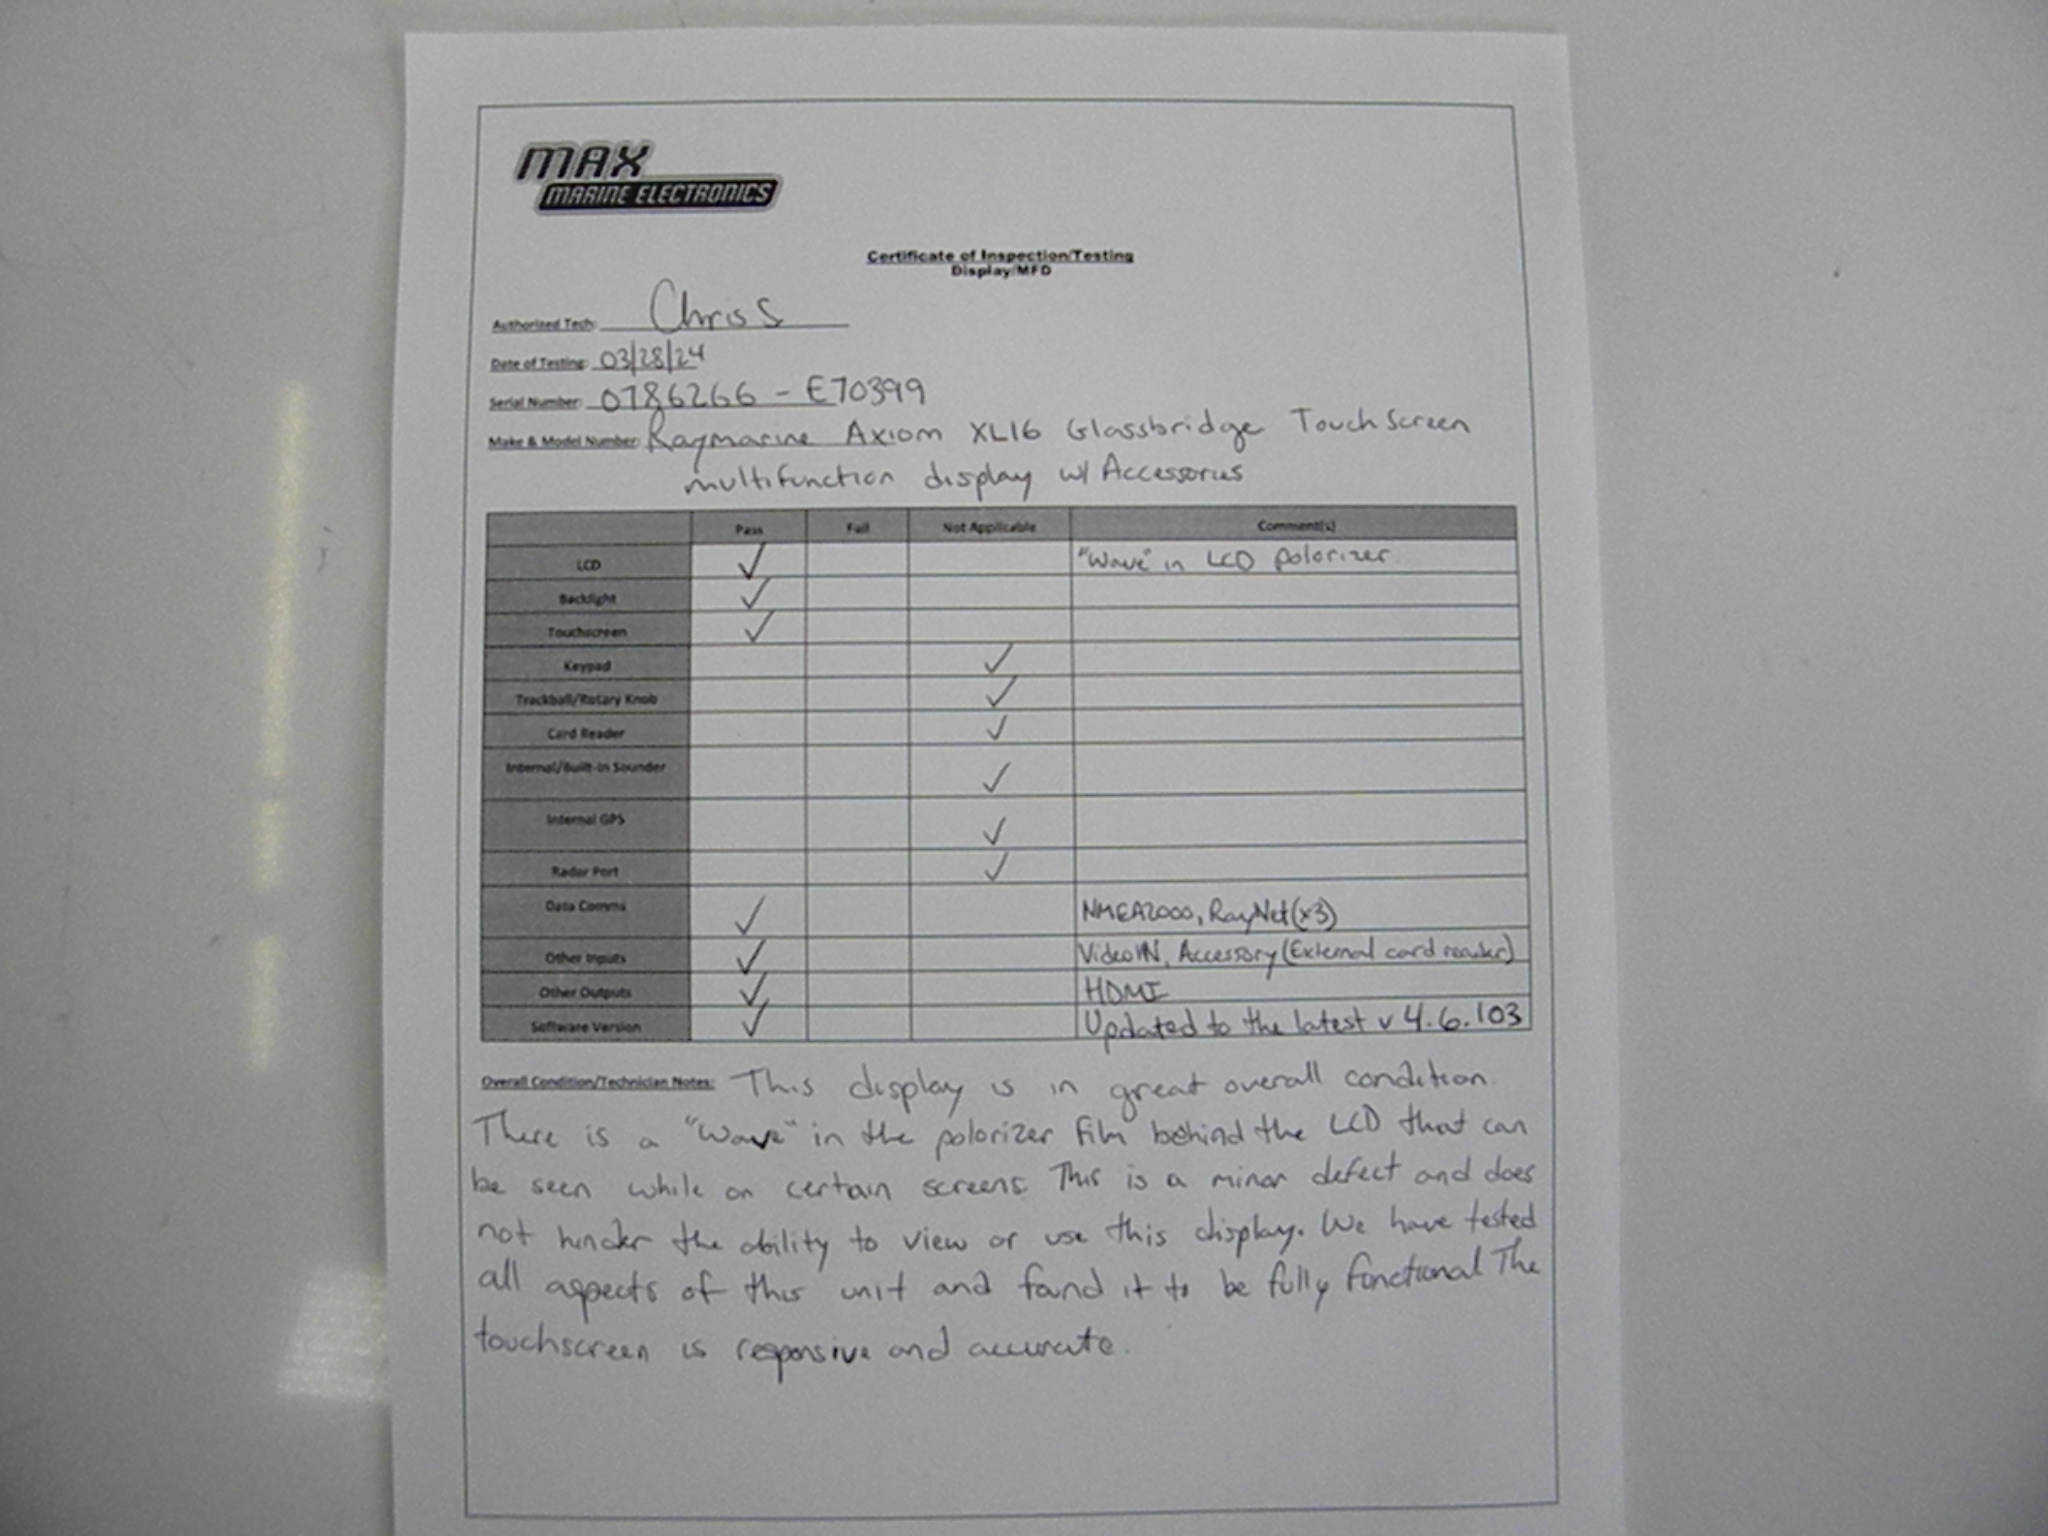 MAX
MARINE ELECTRONICS
Certificate of Inspection/Testing
Display/MFD
Authorized Tech: Chris S
Date of Testing: 03/28/24
Serial Number: 0786266 - E70399
Make & Model Number: Raymarine Axiom XL16 Glassbridge TouchScreen
multifunction display w/ Accessories
Pass Fail Not Applicable Comment(s)
LCD ✓ "Wave" in LCD polorizer.
Backlight ✓
Touchscreen ✓
Keypad ✓
Trackball/Rotary Knob ✓
Card Reader ✓
Internal/Built-In Sounder ✓
Internal GPS ✓
Radar Port ✓
Data Comms ✓ NMEA2000, RayNet(x3)
Other Inputs ✓ Video IN, Accessory (External card reader)
Other Outputs ✓ HDMI
Software Version ✓ Updated to the latest v 4.6.103
Overall Condition/Technician Notes: This display is in great overall condition.
There is a "Wave" in the polorizer film behind the LCD that can
be seen while on certain screens. This is a minor defect and does
not hinder the ability to view or use this display. We have tested
all aspects of this unit and found it to be fully functional The
touchscreen is responsive and accurate.